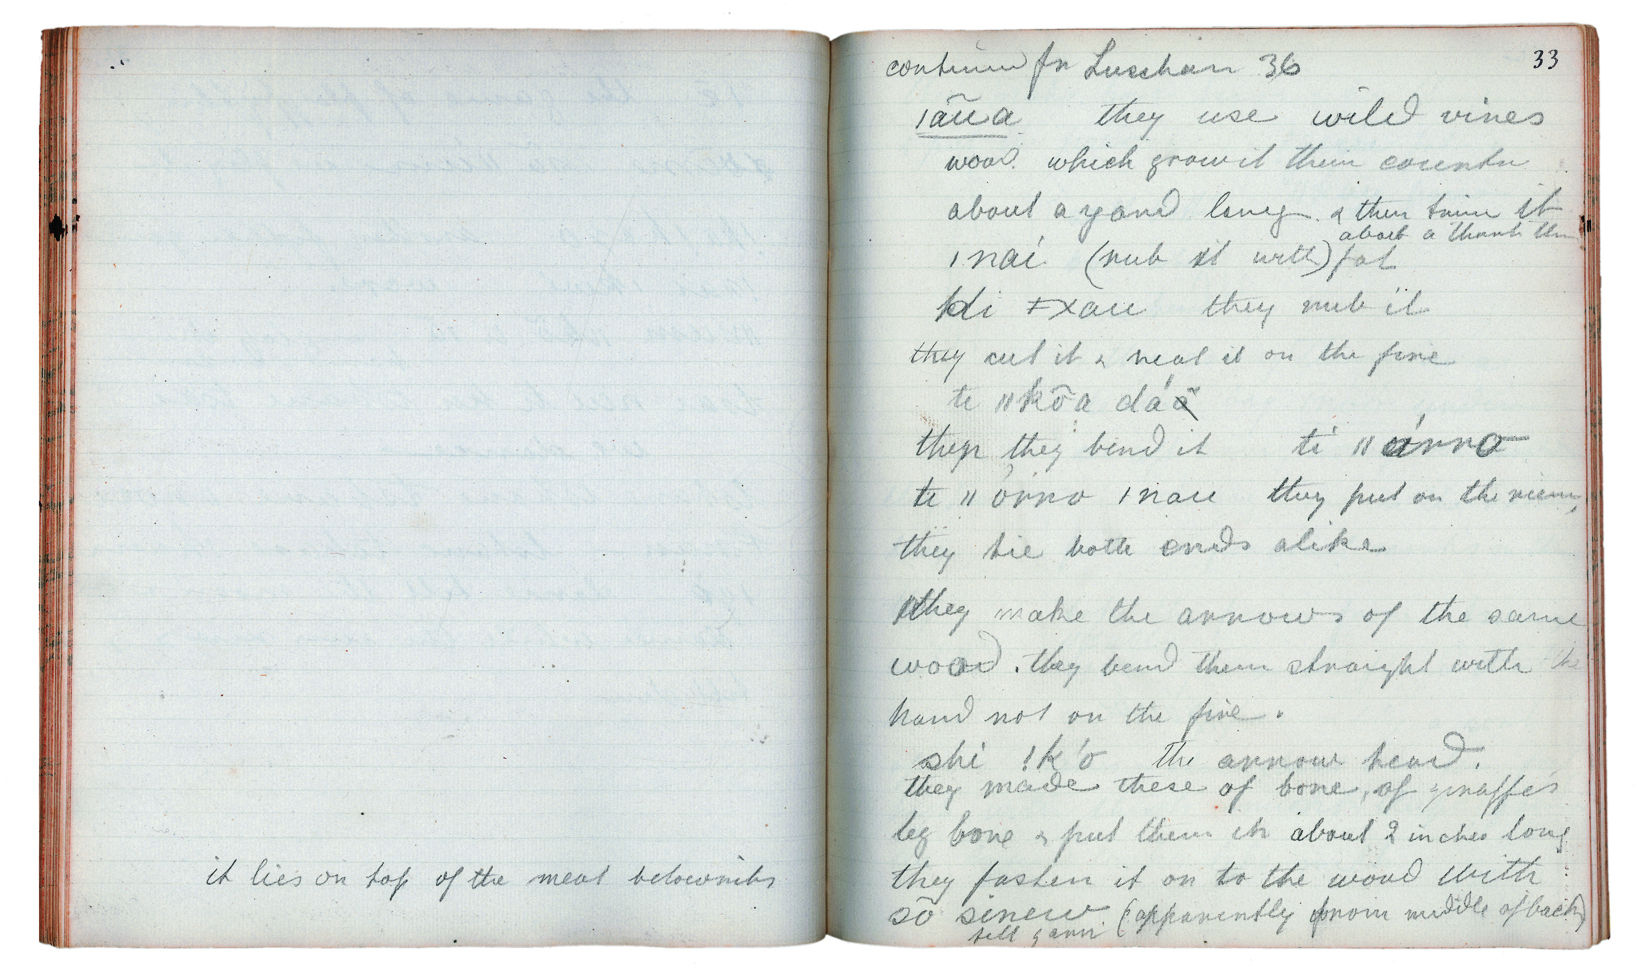 it lies on top of the meat below ribs
33
continue fr Luschan 36
ǀãũa they use wild vines
wood which grow in their country
about a yard long & then trim it
about a thumb thick
ǀnai (rub it with) fat
ǂxau they rub it
they cut it & heat it on the fire
te ǁkõa dá
then they bend it ti ǁárro
te ǁórro ǀnau they put on the riem,
they tie both ends alike
they make the arrows of the same
wood. they bend them straight with the
hand not on the fire.
shi !k'o the arrow head.
they made these of bone, of giraffe's
leg bone & put them in about 2 inches long
they fasten it on to the wood with
sō sinew (apparently from middle of back)